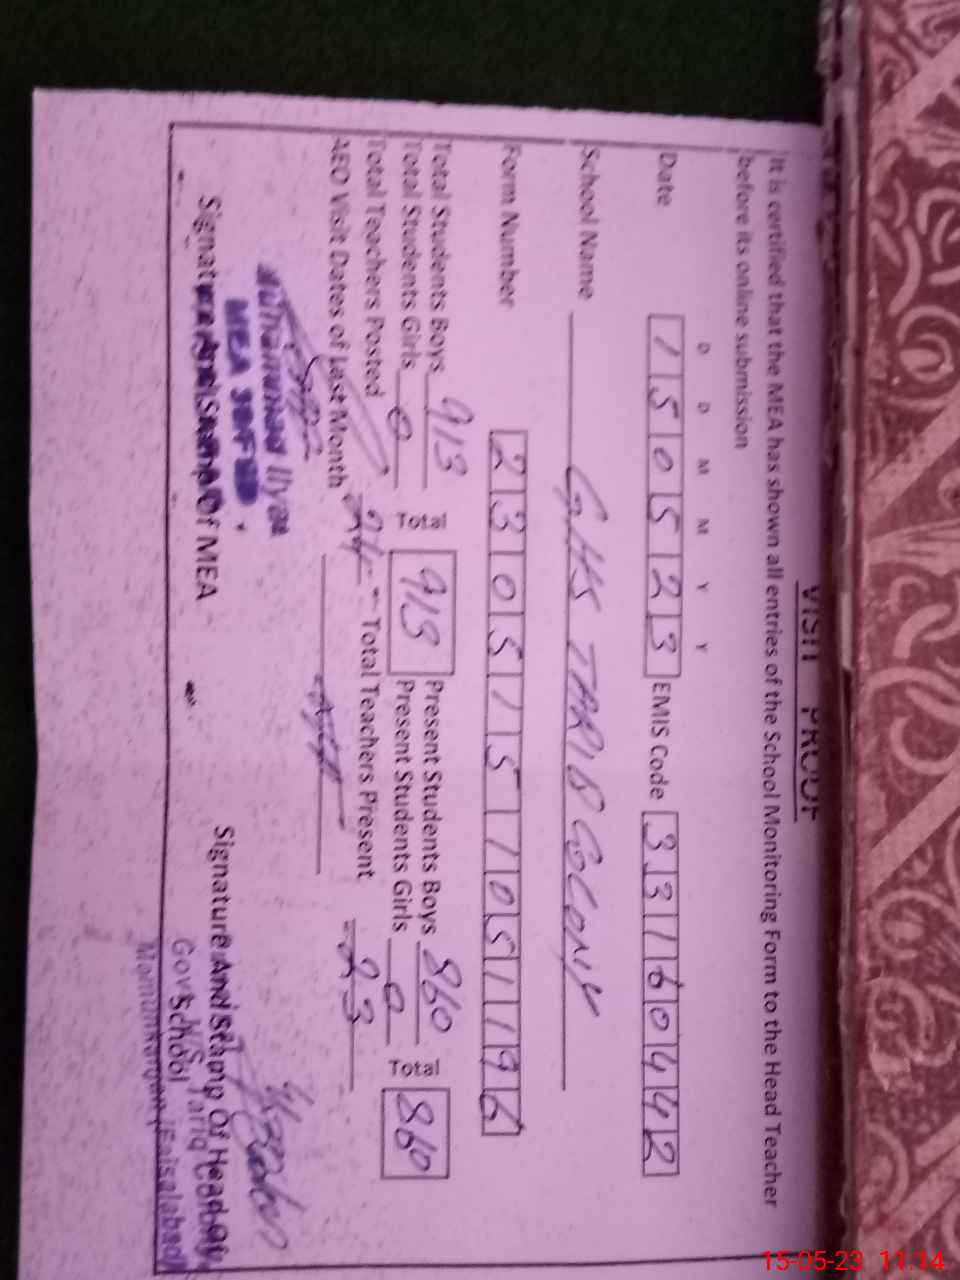 VISIT PROOF
It is certified that the MEA has shown all entries of the School Monitoring Form to the Head Teacher
before its online submission
D D M M Y Y
Date 150523 EMIS Code 33160442
School Name GHS TARIQ COLONY
Form Number 2305151051196
Total Students Boys 913 Total 913 Present Students Boys 860 Total 860
Total Students Girls 0 Present Students Girls 0
Total Teachers Posted 24 Total Teachers Present 23
AEO Visit Dates of Last Month
Muhammad Ilyas
MEA
Signature And Stamp Of MEA
Signature And Stamp Of Head Of
School
Govt Tariq Colony
Faisalabad
15-05-23 11:14